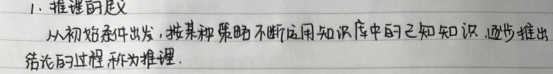 1. 推理的定义
从初始条件出发,按某种策略不断运用知识库中的已知知识,逐步推出
结论的过程称为推理.